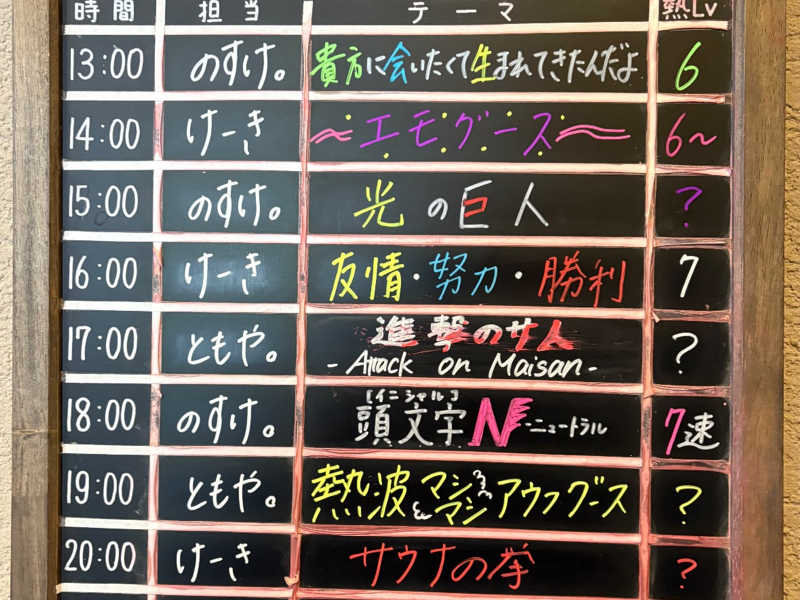 時間 担当 テーマ 熱Lv
13:00 のすけ。 貴方に会いたくて生まれてきたんだよ 6
14:00 けーき 〜エモグース〜 6〜
15:00 のすけ。 光の巨人 ?
16:00 けーき 友情・努力・勝利 7
17:00 ともや。 進撃のサ人 ?
- Attack on Maisan -
[イニシャル]
18:00 のすけ。 頭文字N-ニュートラル 7速
19:00 ともや。 熱波マシマシアウフグース ?
20:00 けーき サウナの拳 ?